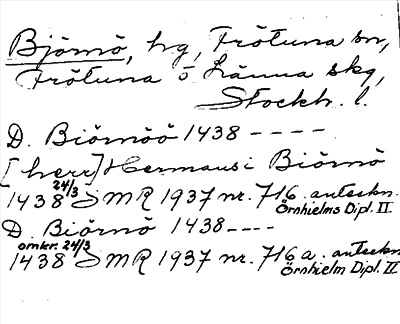 Björnö, hg, Frötuna sn,
Frötuna o Länna skg,
Stockh. l.
D. Biörnöö 1438 ----
[herr] Hermans i Biörnö
1438 24/3 SMR 1937 nr. 716. anteckn. Örnhielms Dipl. II
D. Biörnö 1438 ----
1438 omkr. 24/3 SMR 1937 nr. 716a. anteckn. Örnhielm Dipl. II